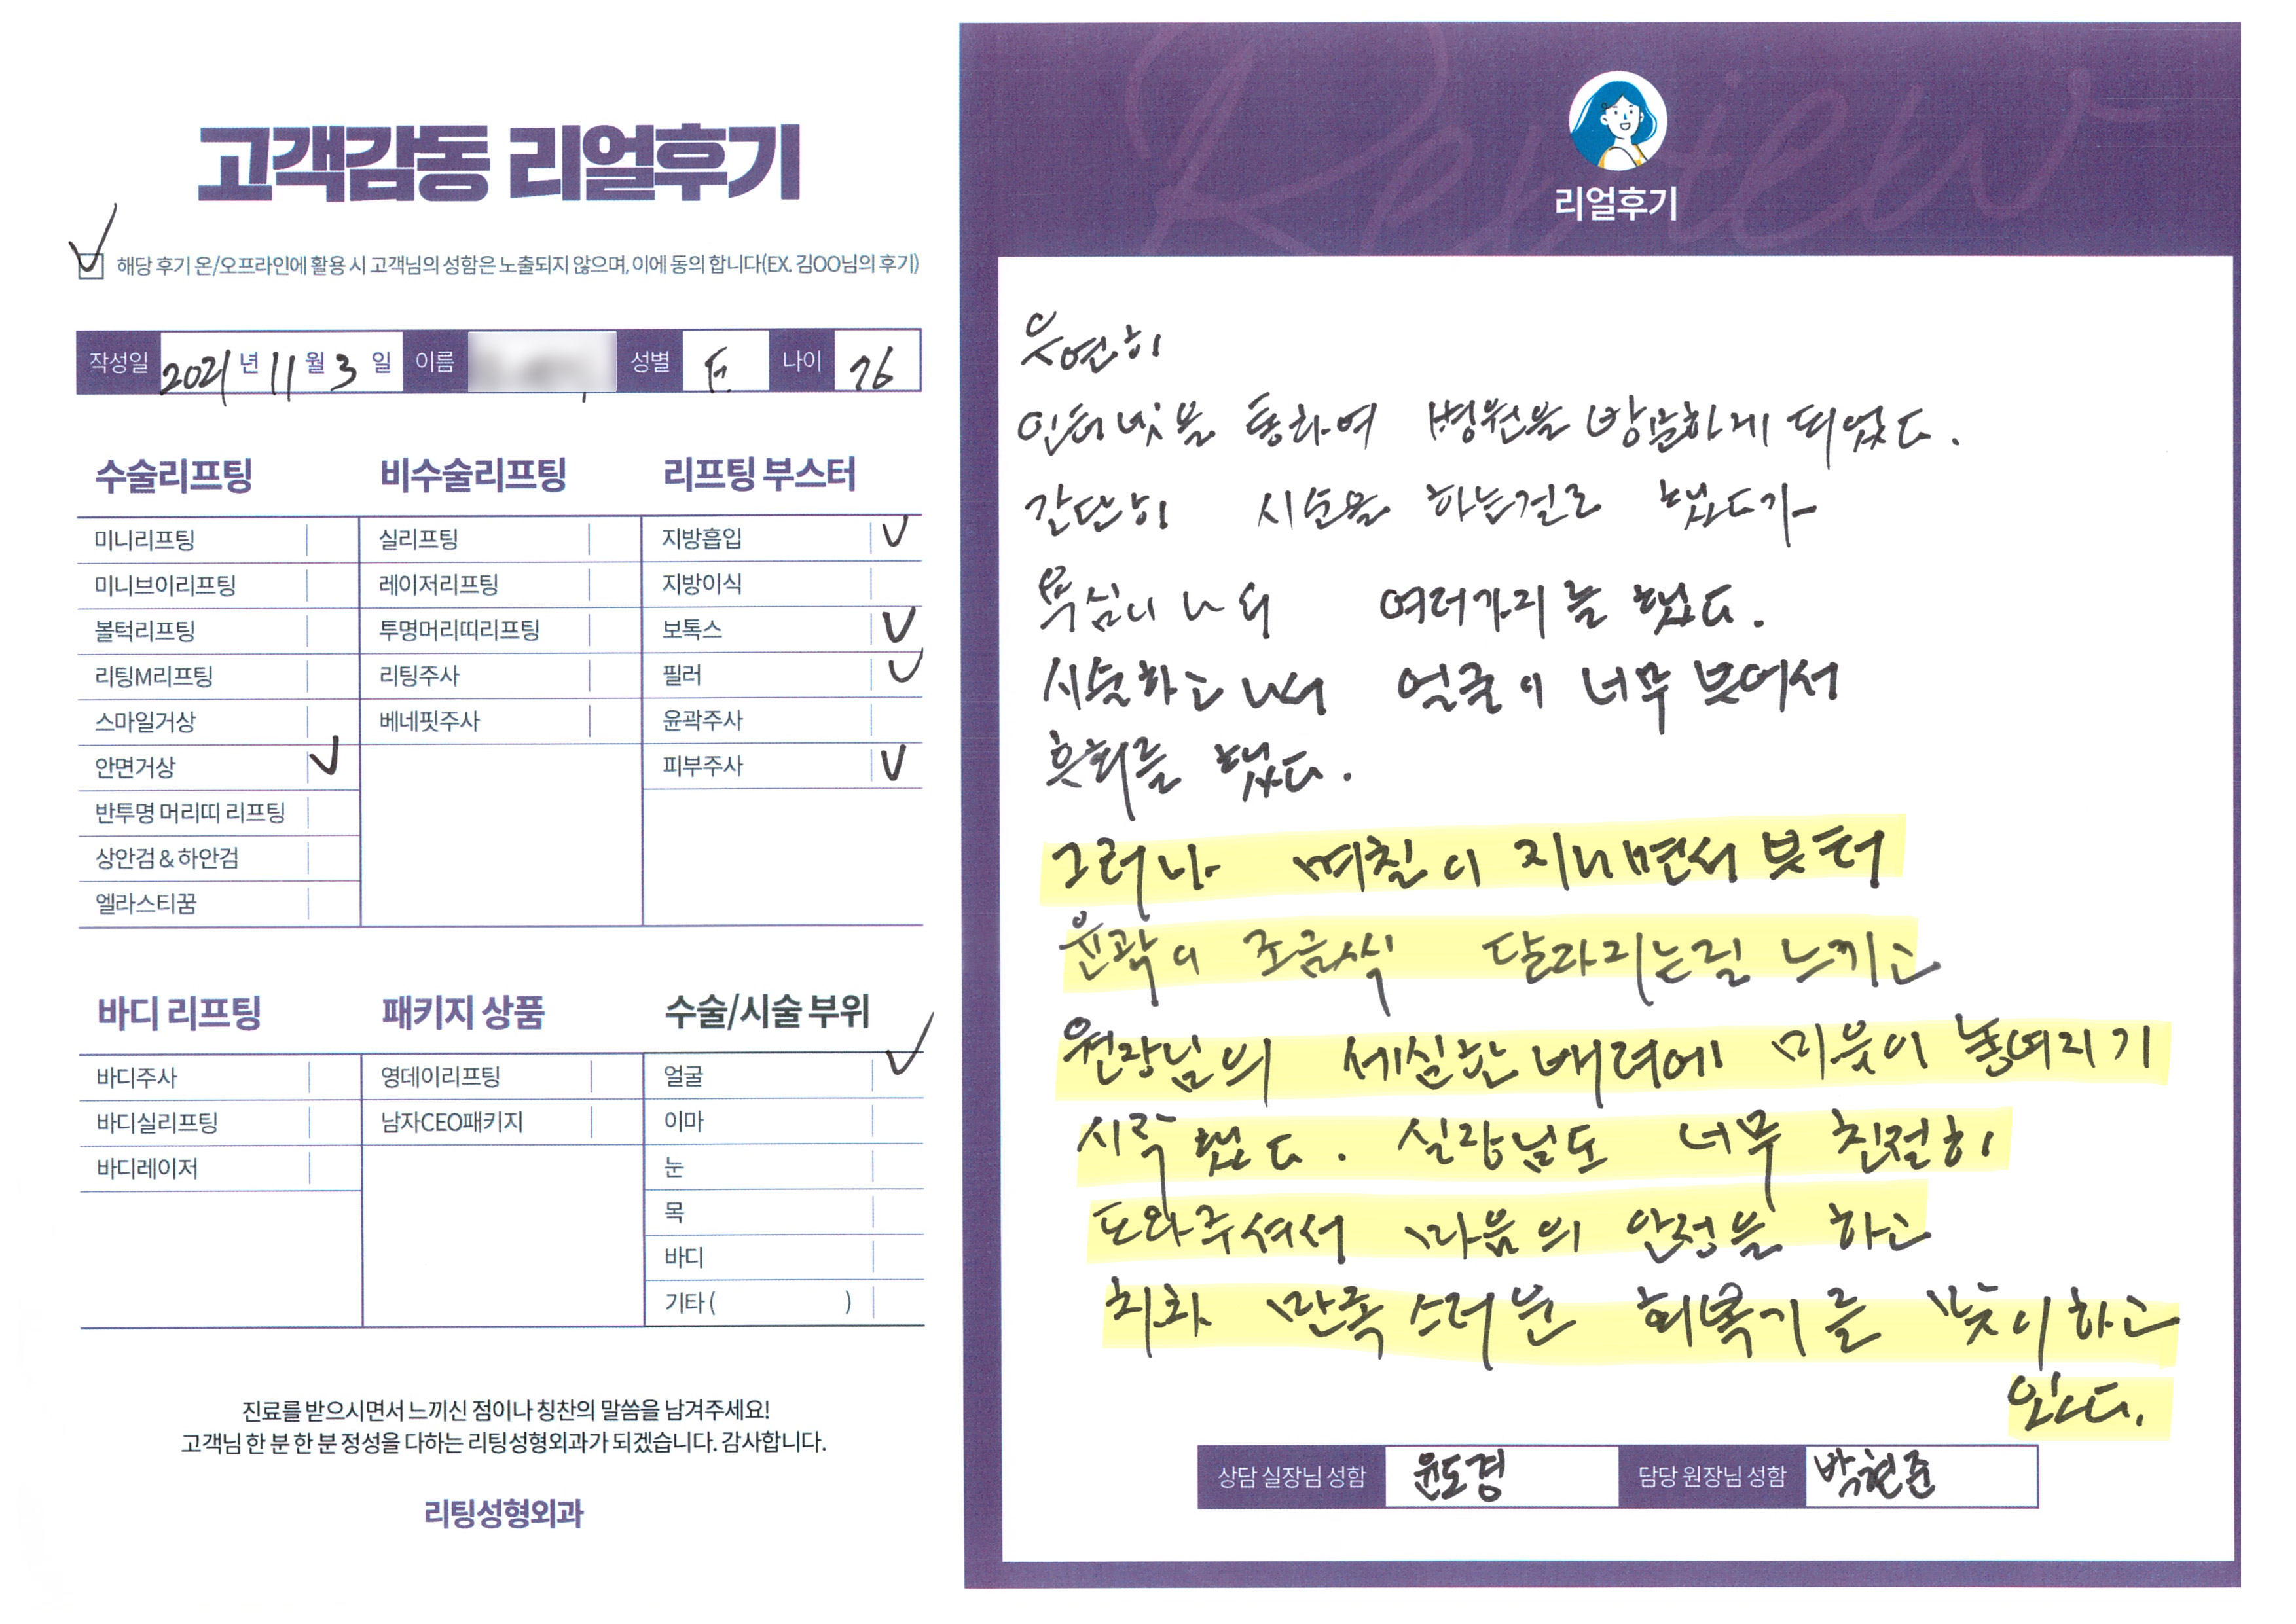 고객감동 리얼후기
해당 후기 온/오프라인에 활용 시 고객님의 성함은 노출되지 않으며, 이에 동의 합니다(EX. 김OO님의 후기)
작성일 2021년 11월 3일 이름 성별 F 나이 76
수술리프팅
미니리프팅
미니브이리프팅
볼턱리프팅
리팅M리프팅
스마일거상
안면거상
반투명 머리띠 리프팅
상안검 & 하안검
엘라스티꿈
비수술리프팅
실리프팅
레이저리프팅
투명머리띠리프팅
리팅주사
베네핏주사
리프팅 부스터
지방흡입
지방이식
보톡스
필러
윤곽주사
피부주사
바디 리프팅
바디주사
바디실리프팅
바디레이저
패키지 상품
영데이리프팅
남자CEO패키지
수술/시술 부위
얼굴
이마
눈
목
바디
기타 ( )
진료를 받으시면서 느끼신 점이나 칭찬의 말씀을 남겨주세요!
고객님 한 분 한 분 정성을 다하는 리팅성형외과가 되겠습니다. 감사합니다.
리팅성형외과
Review
리얼후기
우연히
인터넷을 통하여 병원을 방문하게 되었다.
간단히 시술을 하는걸로 했다가
욕심이 나서 여러가지를 했다.
시술하고 나서 얼굴이 너무 부어서
후회를 했다.
그러나 며칠이 지나면서 부터
윤곽이 조금씩 달라지는걸 느끼고
원장님의 세심한 배려에 믿음이 놓여지기
시작 했다. 실장님도 너무 친절히
도와주셔서 마음의 안정을 하고
차차 만족스러운 회복기를 맞이하고
있다.
상담 실장님 성함 윤도경 담당 원장님 성함 박현준